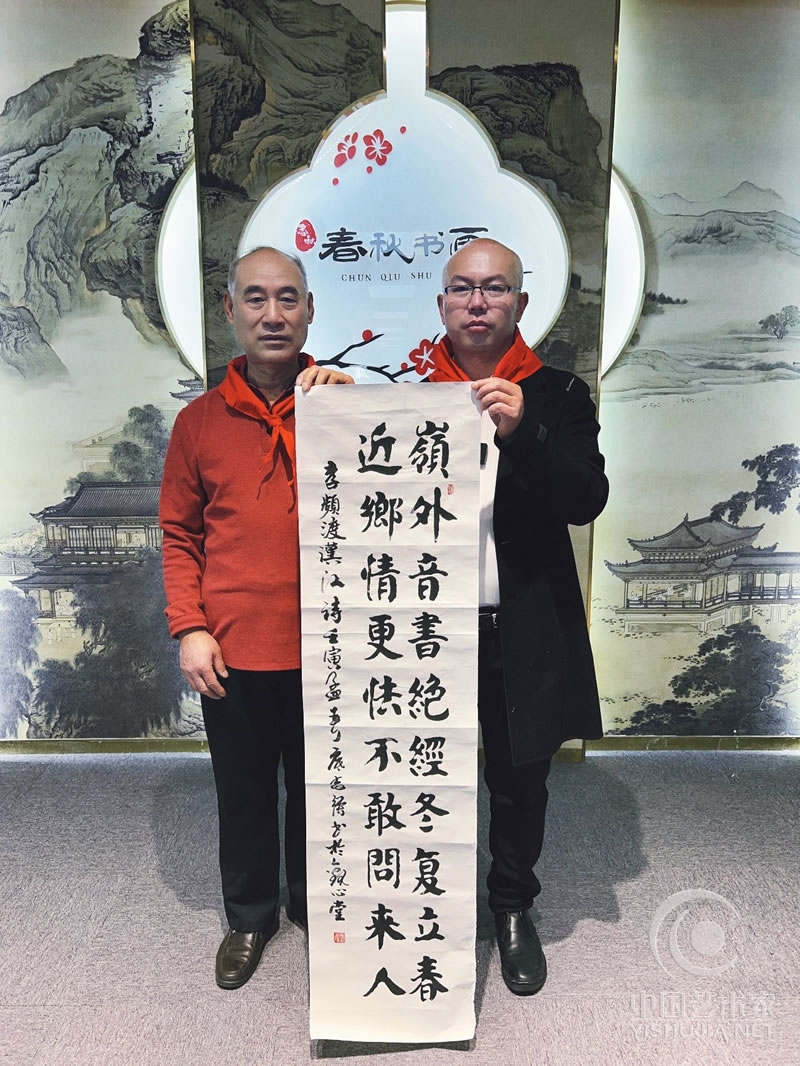 春秋
春秋书画
CHUN QIU SHU
嶺外音書絶經冬复立春
近鄉情更怯不敢問来人
李頻渡漢江詩壬寅孟书於心堂
中国艺术家
YISHUJIA.NET